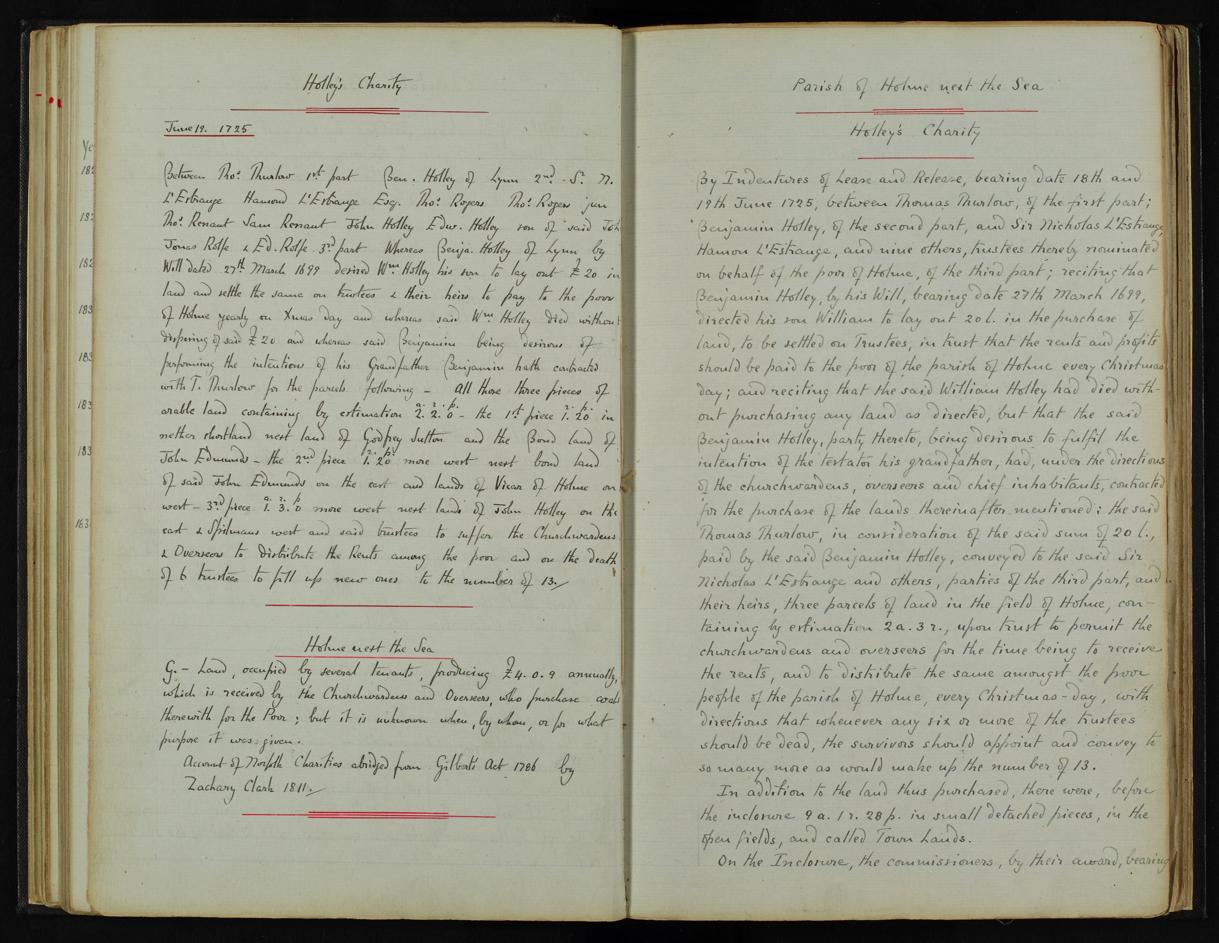 Holley's Charity
June 19. 1725
Between Tho.s Thurlow 1st part Ben. Holley of Lynn 2nd - Sr. N.
L'Estrange Hamond L'Estrange Esq. Tho.s Rogers Tho.s Rogers jun
Tho.s Renaut Sam Renaut John Holley Edw. Holley son of said Joh
Jonas Rolfe & Ed. Rolfe 3rd part Whereas Benja. Holley of Lynn by
Will dated 27th March 1699 desired Wm Holley his son to lay out £20 in
land and settle the same on trustees & their heirs to pay to the poor
of Holme yearly on Xmas day and whereas said Wm Holley died without
dispring of said £20 and whereas said Benjamin being desirous of
performing the intentions of his Grandfather Benjamin hath contracted
with T. Thurlow for the parcels following - all those three pieces of
arable land containing by estimation a. r. p. 2. 2. 0 - the 1st piece r. p. 1. 20 in
nether shortland next land of Godfrey Sutton and the Bond land of
John Edmunds - the 2nd piece r. p. 1. 20 more west next bond land
of said John Edmunds on the east and lands of Vicar of Holme on
west - 3rd piece a. r. p. 1. 3. 0 more west next lands of John Holley on the
east & Spilmans west and said trustees to suffer the Churchwardens
& Overseers to distribute the Rents among the poor and on the death
of 6 trustees to fill up new ones to the number of 13.
Holme next the Sea
G. - Land, occupied by several tenants, producing £4. 0. 9 annually,
which is received by the Churchwardens and Overseers, who purchase coals
therewith for the Poor; but it is unknown when, by whom, or for what
purpose it was given.
Account of Norfolk Charities abridged from Gilbert's Act 1786 by
Zachary Clark 1811.
Parish of Holme next the Sea
Holley's Charity
By Indentures of Lease and Release, bearing date 18th and
19th June 1725, between Thomas Thurlow, of the first part;
Benjamin Holley, of the second part, and Sir Nicholas L'Estrange,
Hamon L'Estrange, and nine others, trustees thereby nominated
on behalf of the poor of Holme, of the third part; reciting that
Benjamin Holley, by his Will, bearing date 27th March 1699,
directed his son William to lay out 20 l. in the purchase of
land, to be settled on Trustees, in trust that the rents and profits
should be paid to the poor of the parish of Holme every Christmas
day; and reciting that the said William Holley had died with-
out purchasing any land as directed, but that the said
Benjamin Holley, party thereto, being desirous to fulfil the
intention of the testator his grandfather, had, under the directions
of the churchwardens, overseers and chief inhabitants, contracted
for the purchase of the lands thereinafter mentioned: the said
Thomas Thurlow, in consideration of the said sum of 20 l.,
paid by the said Benjamin Holley, conveyed to the said Sir
Nicholas L'Estrange and others, parties of the third part, and
their heirs, three parcels of land in the field of Holme, con-
taining by estimation 2 a. 3 r., upon trust to permit the
churchwardens and overseers for the time being to receive
the rents, and to distribute the same amongst the poor
people of the parish of Holme, every Christmas-day, with
directions that whenever any six or more of the trustees
should be dead, the survivors should appoint and convey to
so many more as would make up the number of 13.
In addition to the land thus purchased, there were, before
the inclosure 9 a. 1 r. 28 p. in small detached pieces, in the
open fields, and called Town Lands.
On the Inclosure, the commissioners, by their award, bearing